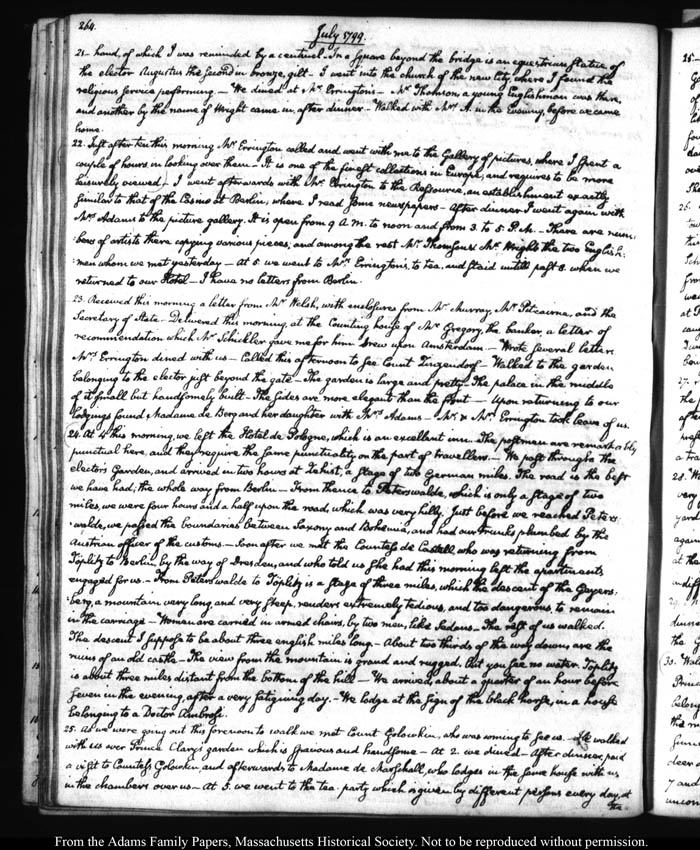 264.
July 1799.
21. hand, of which I was reminded by a centinel. In a square beyond the bridge is an equestrian statue of
the elector Augustus the second in bronze, gilt. I went into the church of the new city, where I found the
religious service performing. — We dined at Mr. Errington's. — Mr. Thomson, a young Englishman was there,
and another by the name of Wright came in, after dinner. Walked with Mrs. A. in the evening, before we came
home.
22. Just after ten this morning Mr. Errington called and went with me to the Gallery of pictures, where I spent a
couple of hours in looking over them — It is one of the finest collections in Europe, and requires to be more
leisurely viewed — I went afterwards with Mr. Errington to the Ressource, an establishment exactly
similar to that of the Casino at Berlin, where I read some newspapers — After dinner I went again with
Mrs. Adams to the picture gallery. It is open from 9 A.M. to noon and from 3. to 5 P.M. — There are num-
bers of artists there copying various pieces, and among the rest Mr. Thomson & Mr. Wright the two English-
men whom we met yesterday — At 5. we went to Mrs. Errington's, to tea, and staid untill past 8. when we
returned to our Hotel — I have no letters from Berlin.
23. Received this morning a letter from Mr. Welsh, with enclosures from Mr. Murray, Mr. Pitcairn, and the
Secretary of State — Delivered this morning, at the Counting house of Mr. Gregory, the banker, a letter of
recommendation which Mr. Schickler gave me for him. Drew upon Amsterdam — Wrote several letters
Mrs. Errington dined with us — Called this afternoon to see Count Zinzendorf — Walked to the garden
belonging to the elector just beyond the gate — The garden is large and pretty. The palace in the middle
of it small but handsomely built — The sides are more elegant than the front — Upon returning to our
lodgings found Madame de Berg and her daughter with Mrs. Adams — Mr. & Mrs. Errington took leave of us.
24. At 4 this morning, we left the Hotel de Pologne, which is an excellent inn. The postmen are remarkably
punctual here, and they require the same punctuality on the part of travellers. — We past through the
elector's Garden, and arrived in two hours at Zehist, a stage of two German miles. The road is the best
we have had, the whole way from Berlin — From thence to Peterswalde, which is only a stage of two
miles, we were four hours and a half upon the road, which was very hilly. Just before we reached Peters-
walde, we passed the boundaries between Saxony and Bohemia, and had our trunks plumbed by the
Austrian officer of the customs. — Soon after we met the Countess de Castell, who was returning from
Töplitz to Berlin by the way of Dresden, and who told us she had this morning left the apartments
engaged for us. — From Peterswalde to Töplitz is a stage of three miles, which the descent of the Geyers-
berg, a mountain very long and very steep, renders extremely tedious, and too dangerous to remain
in the carriage — Women are carried in armed chairs, by two men, like Sedans. The rest of us walked.
The descent I suppose to be about three english miles long. — About two thirds of the way down, are the
ruins of an old castle — The view from the mountain is grand and rugged. But you see no water. Töplitz
is about three miles distant from the bottom of the hill — We arrived about a quarter of an hour before
seven in the evening, after a very fatiguing day. — We lodge at the sign of the black horse, in a house
belonging to a Doctor Ambrosi.
25. As we were going out this forenoon to walk we met Count Golowkin, who was coming to see us. He walked
with us over Prince Clary's garden which is spacious and handsome — At 2. we dined — After dinner, paid
a visit to Countess Golowkin, and afterwards to Madame de Marschall, who lodges in the same house with us
in the chambers over us — At 5. we went to the tea-party which is given by different persons every day, at
the
From the Adams Family Papers, Massachusetts Historical Society. Not to be reproduced without permission.